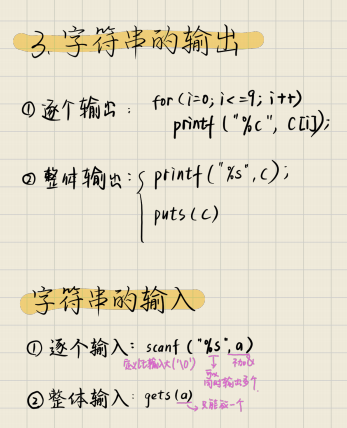 3. 字符串的输出
① 逐个输出: for (i=0; i<=9; i++)
printf ("%c", C[i]);
② 整体输出: { printf ("%s", c);
puts (c)
字符串的输入
① 逐个输入: scanf ("%s", a)
定义比输入大('\0')
同时输出多个
② 整体输入: gets (a)
→ 只能放一个